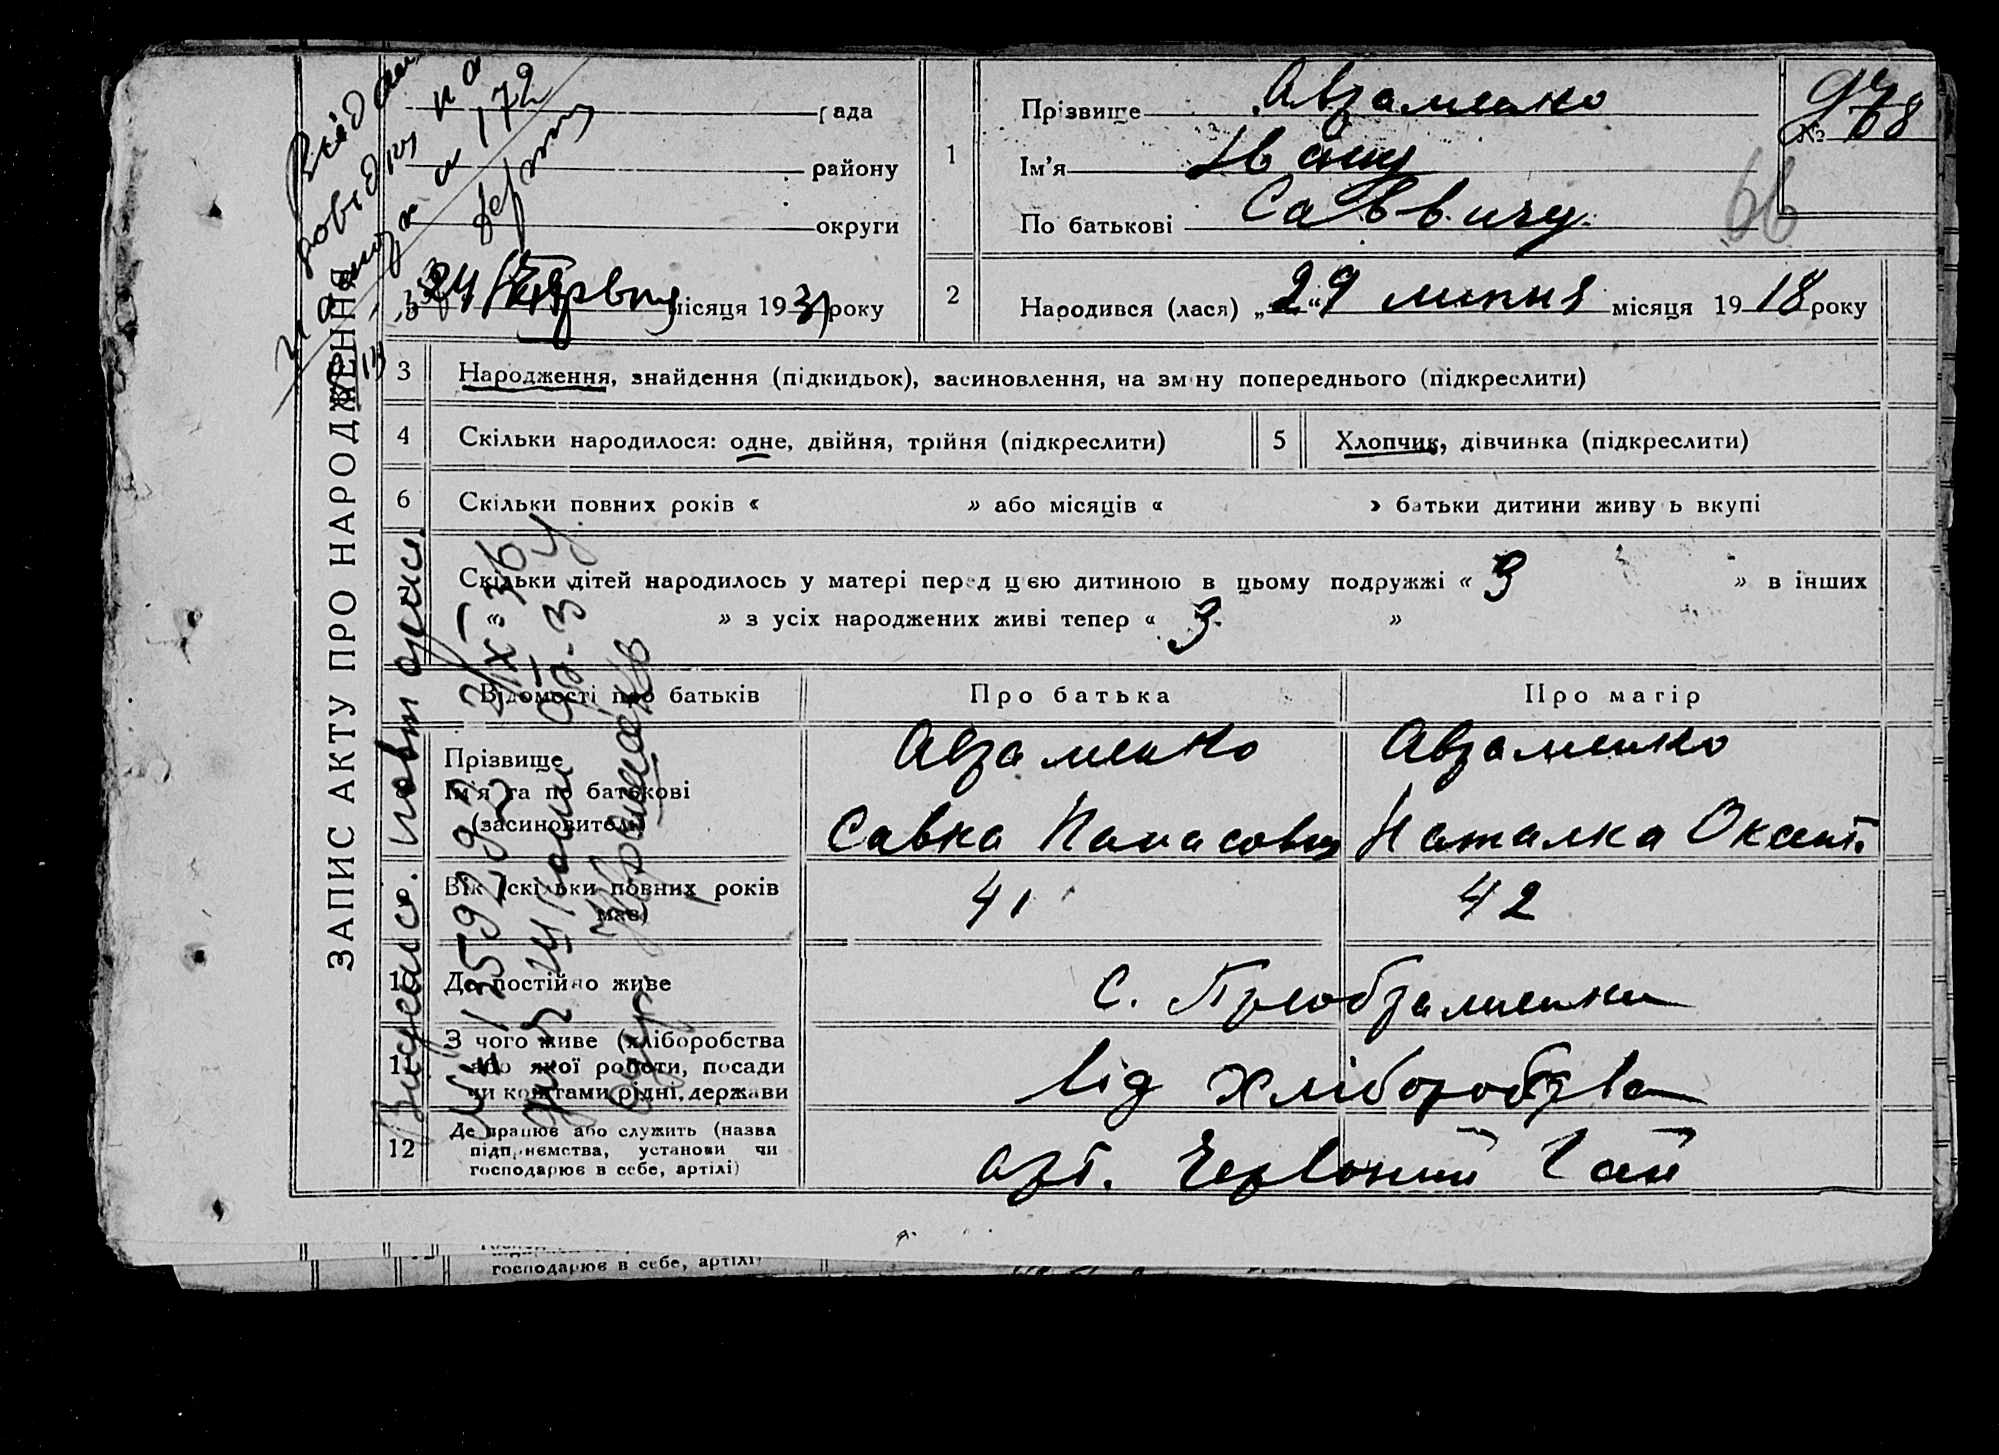 ЗАПИС АКТУ ПРО НАРОДЖЕННЯ
рада
району
округи
місяця 1931 року
1
Прізвище Авраменко
Ім'я Івану
По батькові Саввичу
№ 68
66
2
Народився (лася) „29 липня місяця 1918 року
3 Народження, знайдення (підкидьок), засиновлення, на зміну попереднього (підкреслити)
4 Скільки народилося: одне, двійня, трійня (підкреслити)
5 Хлопчик, дівчинка (підкреслити)
6 Скільки повних років « » або місяців « » батьки дитини живу ь вкупі
Скільки дітей народилось у матері перед цією дитиною в цьому подружжі « 3 » в інших
« » з усіх народжених живі тепер « 3 »
Відомості про батьків
Про батька
Про матір
Прізвище
Ім'я та по батькові
(засиновителі)
Авраменко
Савка Панасович
Авраменко
Наталка Оксент.
Вік (скільки повних років має)
41
42
10 Де постійно живе
с. Преображенки
11 З чого живе (хліборобства
або якої роботи, посади
чи коштами рідні, держави
від хліборобства
12 Де працює або служить (назва
підприємства, установи чи
господарює в себе, артілі)
арт. Червоний Гай
господарює в себе, артілі